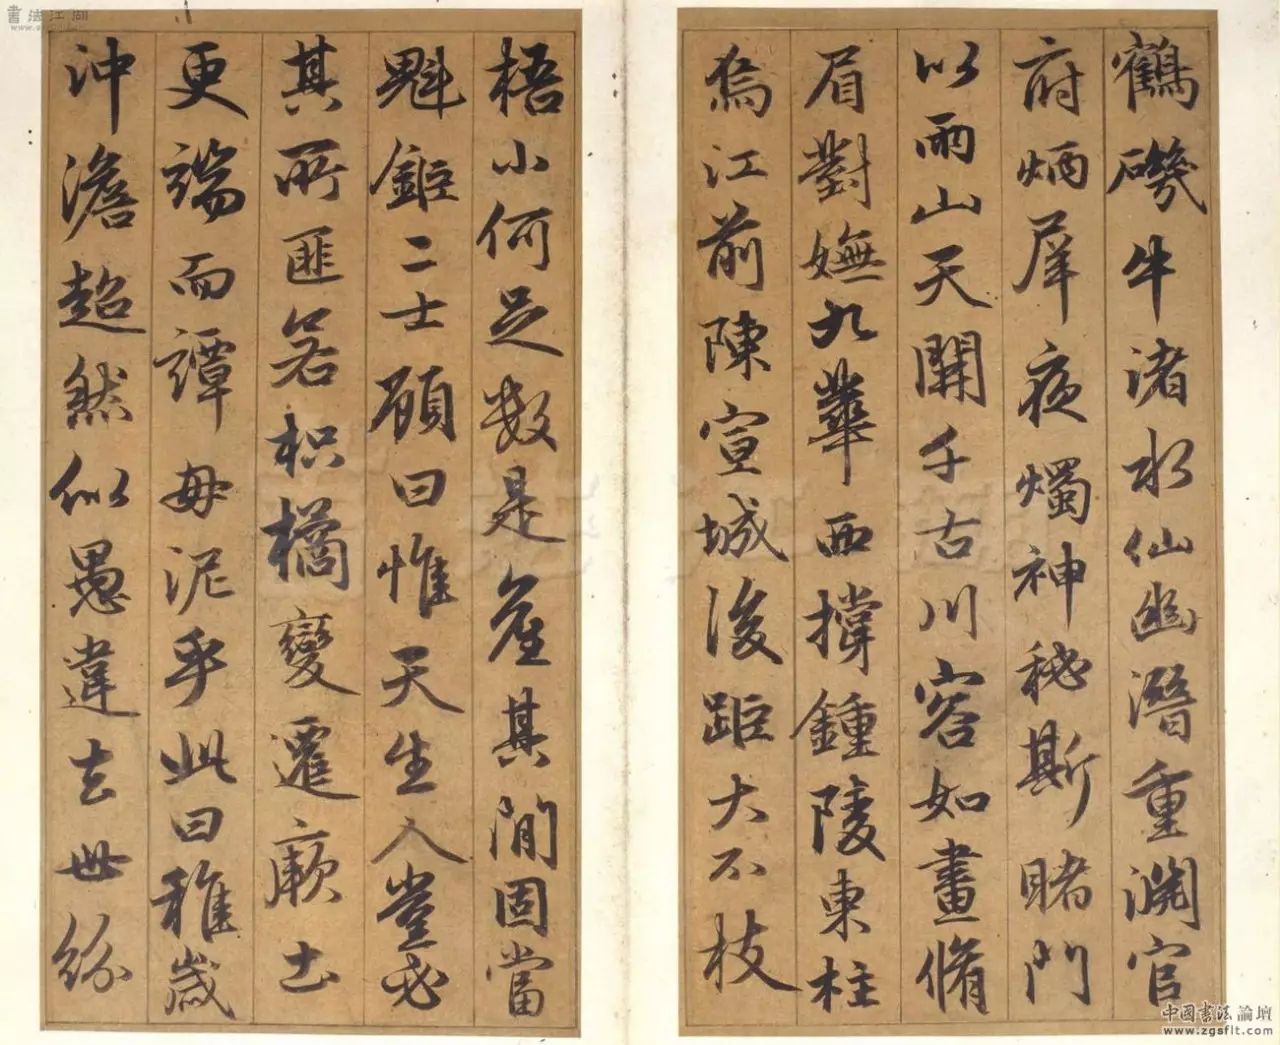 鶴磯牛渚水仙幽潛重淵官
府炳犀夜燭神秘斯睹門
以兩山天開千古川容如畫脩
眉對嫵九華西撐鍾陵東柱
為江前陳宣城後距大不枝
梧小何足數是產其間固當
魁鉅二士顧曰惟天生人豈必
其所匪若枳橘變遷厥土
更端而譚毋泥乎此曰稚歲
沖澹超然似愚違去世紛
書法江湖
中国書法論壇
www.zgsflt.com